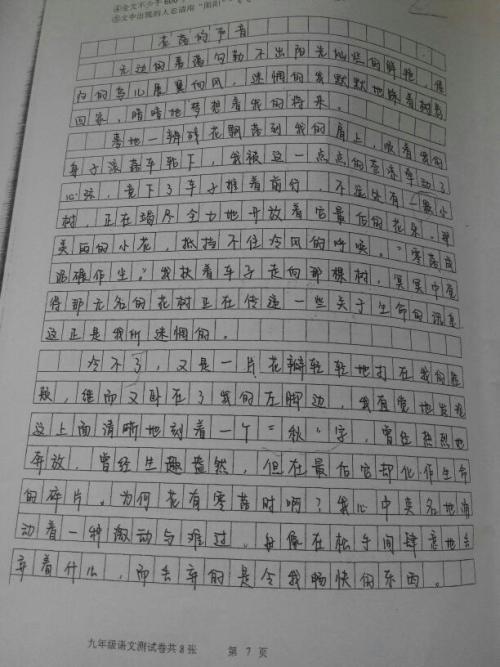 ④全文不少于600
⑤文中出现的人总请用“阳阳”
花落的声音
无边的香落勾勒不出阳光灿烂的鲜艳，傍
白的鸟儿展翼向风，迷惘的我默默地踩着树影
回家，暗暗地梦想着我的将来。
蓦地一瓣残花飘落到我的肩上，顺着我的
身子滚落车轮下，我被这一点点的苍凉牵动了
心弦，竟下了车子推着前行，不远处有一颗小
树，正在竭尽全力地开放着它最后的花朵。那
美丽的小花，抵挡不住冷风的呼唤。“零落成
泥碾作尘。”我扶着车子走向那棵树，冥冥中觉
得那无名的花树正在传递一些关于生命的讯息
这正是我所迷惘的。
冷不了，又是一片花瓣轻轻地打在我的脸
颊，继而又卧在了我的左脚边，我有觉地发现
这上面清晰地刻着一个“秋”字，曾经热烈地
奔放，曾经生趣盎然，但在最后它却化作生命
的碎片。为何花有零落时啊？我心中莫名地涌
动着一种激动与难过。好像在松手间肆意地丢
弃着什么，而丢弃的是令我畅快的东西。
九年级语文测试卷共8张 第 7 页